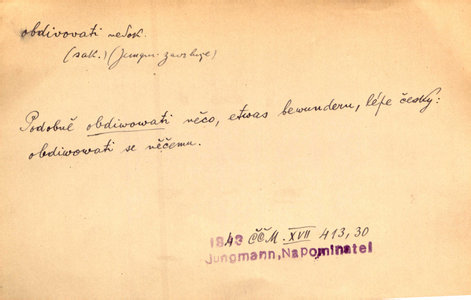 obdivovati nedok.
(zak.) (Jungm. zavrhuje)
Podobně obdiwowati něco, etwas bewundern, lépe česky:
obdiwowati se něčemu.
1843 ČČM. XVII 413,30
Jungmann, Napominatel